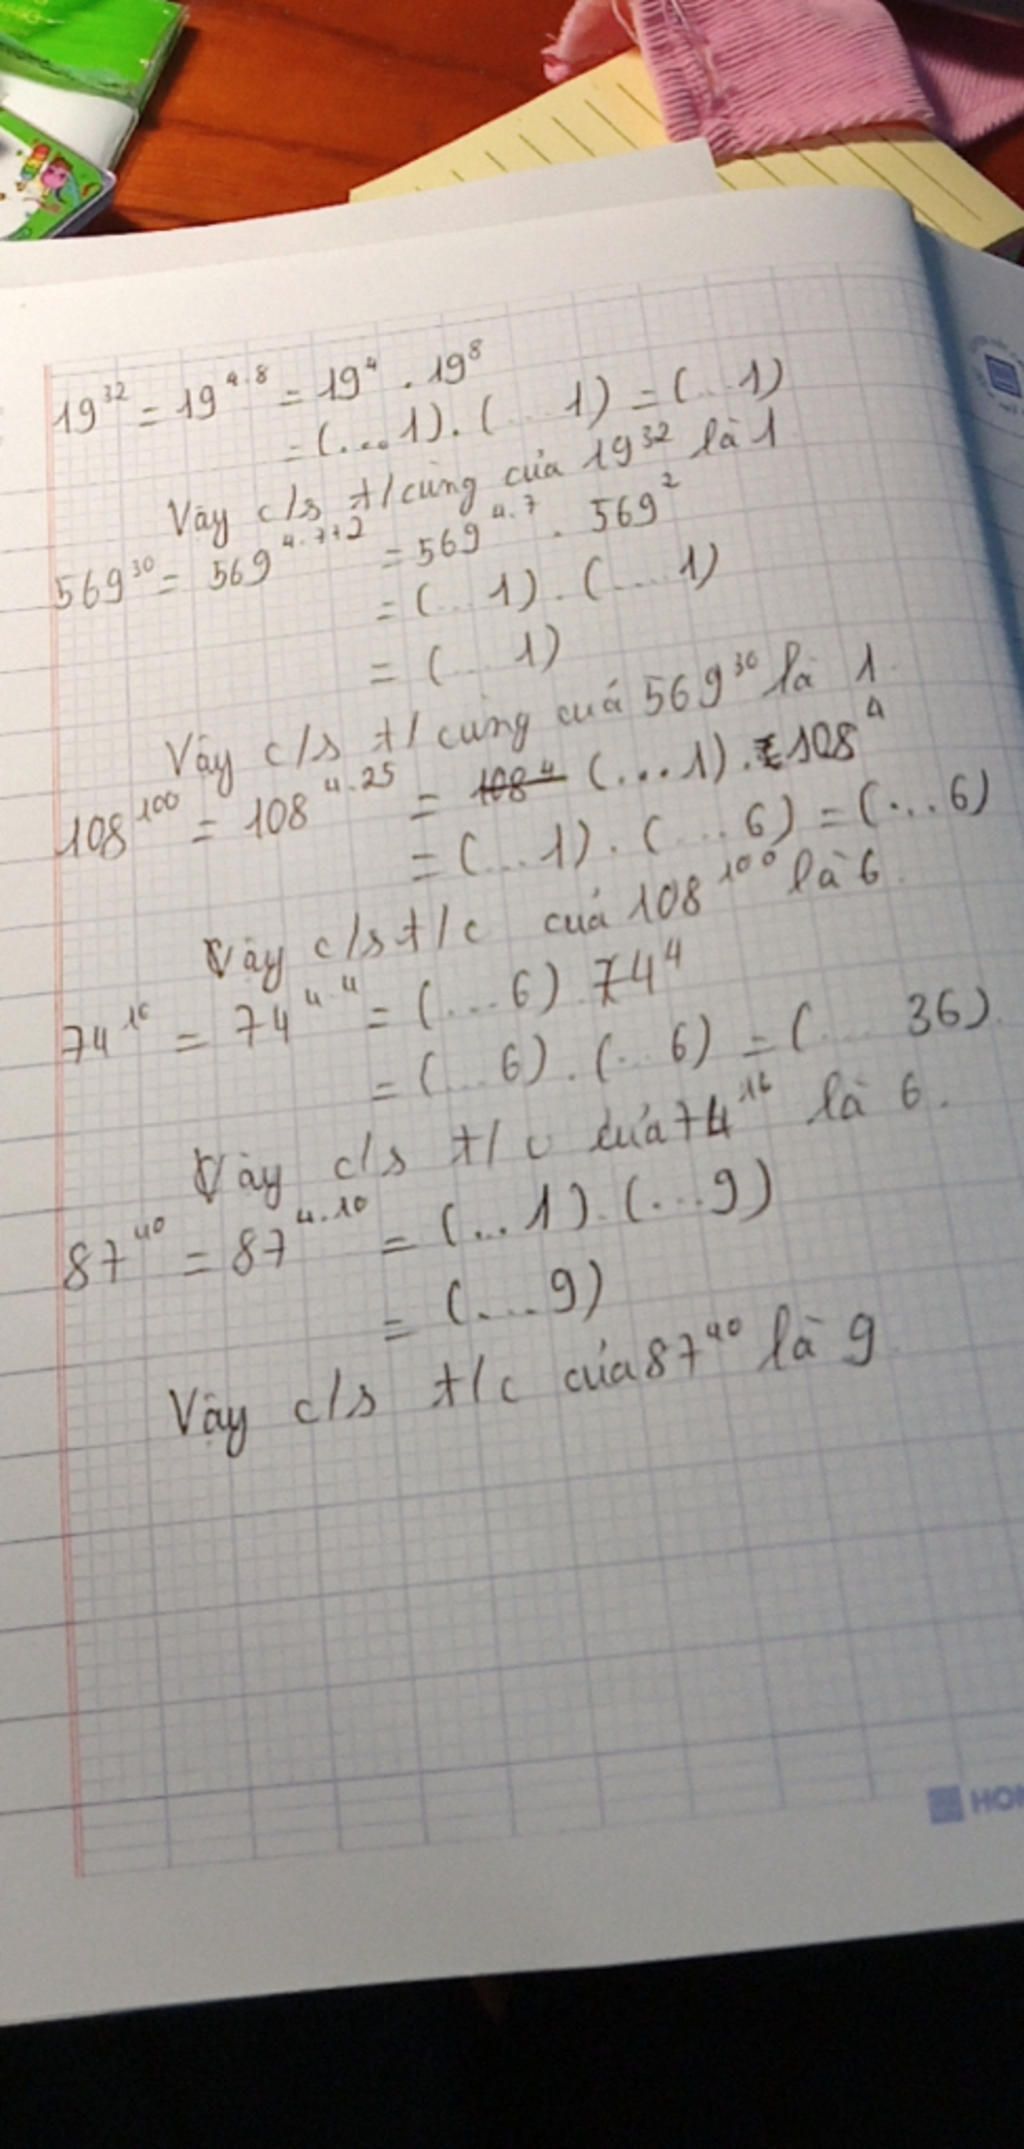 19³² = 19⁴·⁸ = 19⁴ . 19⁸
= (... 1) . (... 1) = (...1)
Vậy c/s t/cùng của 19³² là 1
569³⁰ = 569⁴·⁷⁺² = 569⁴·⁷ . 569²
= (... 1) . (... 1)
= (... 1)
Vậy c/s t/cùng của 569³⁰ là 1
108¹⁰⁰ = 108⁴·²⁵ = (...1) . 108⁴
= (...1) . (...6) = (...6)
Vậy c/s t/c của 108¹⁰⁰ là 6.
74¹⁶ = 74⁴·⁴ = (...6) . 74⁴
= (...6) . (...6) = (... 36)
Vậy c/s t/c của 74¹⁶ là 6.
87⁴⁰ = 87⁴·¹⁰ = (...1) . (...9)
= (....9)
Vậy c/s t/c của 87⁴⁰ là 9
HON